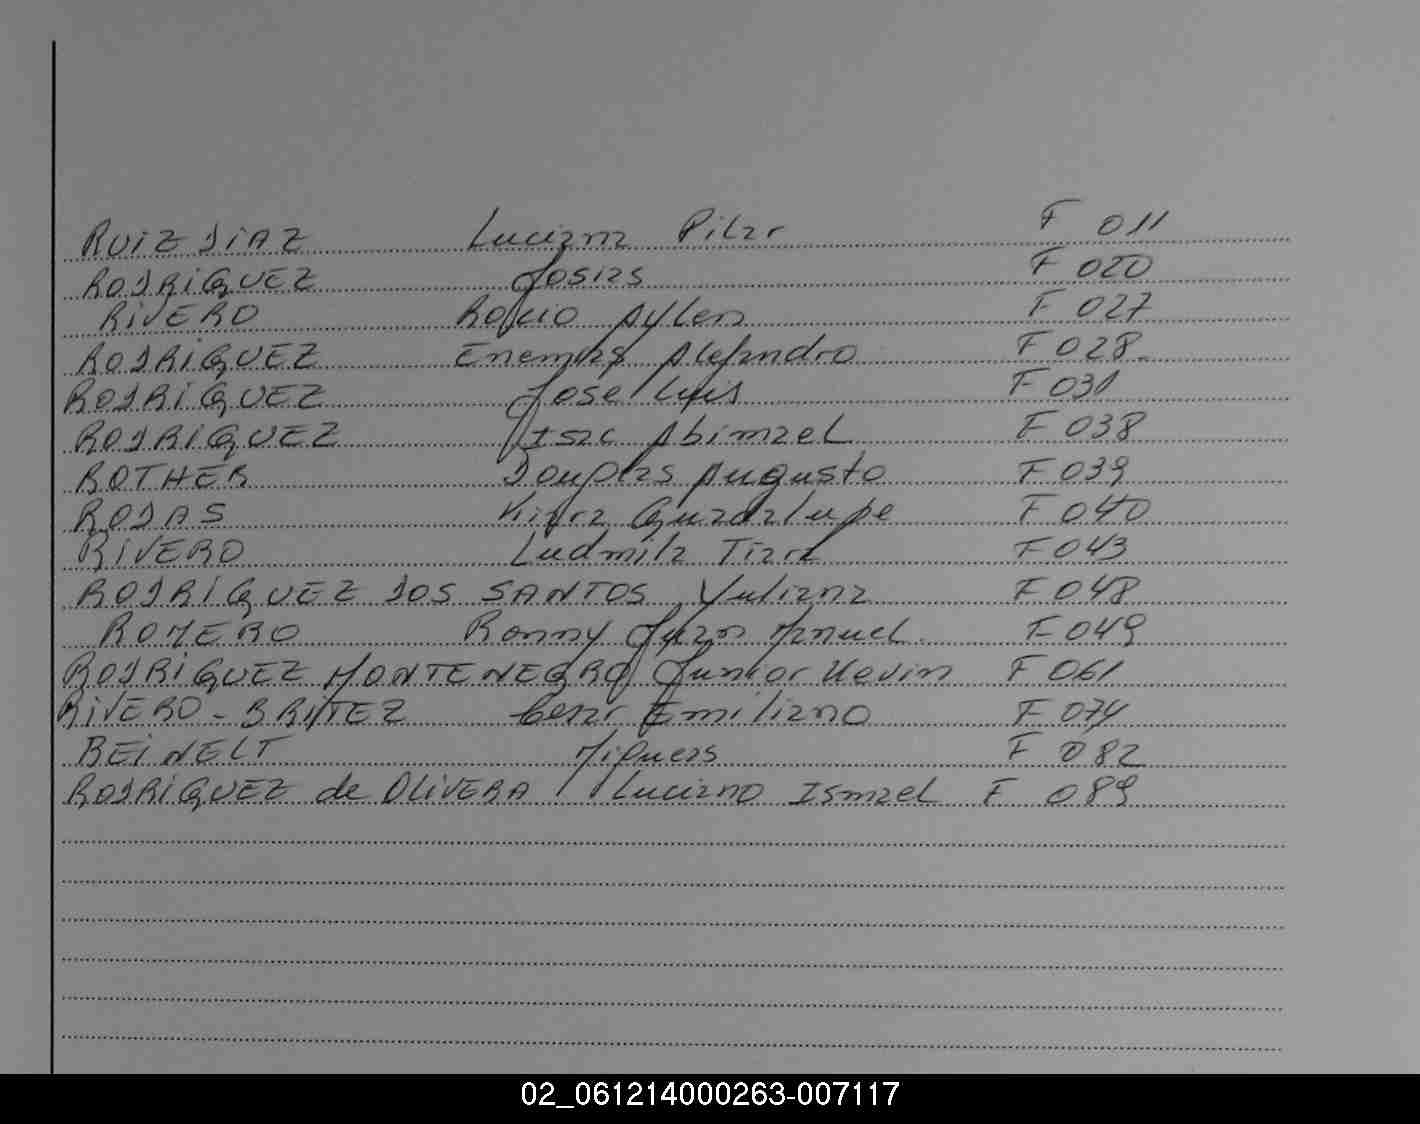 RUIZ DIAZ Luciana Pilar F 011
RODRIGUEZ Josias F 020
RIVERO Rocio Aylen F 027
RODRIGUEZ Enemias Alejandro F 028
RODRIGUEZ Jose Luis F 031
RODRIGUEZ Isac Abimael F 038
ROTHER Douglas Augusto F 039
ROJAS Kiara Guadalupe F 040
RIVERO Ludmila Tiara F 043
RODRIGUEZ DOS SANTOS Yuliana F 048
ROMERO Ronny Juan Manuel. F 049
RODRIGUEZ MONTENEGRO Junior Kevin F 061
RIVERO - BRITEZ Cesar Emiliano F 074
REINELT F 082
RODRIGUEZ de OLIVERA Luciano Ismael F 089
02_061214000263-007117